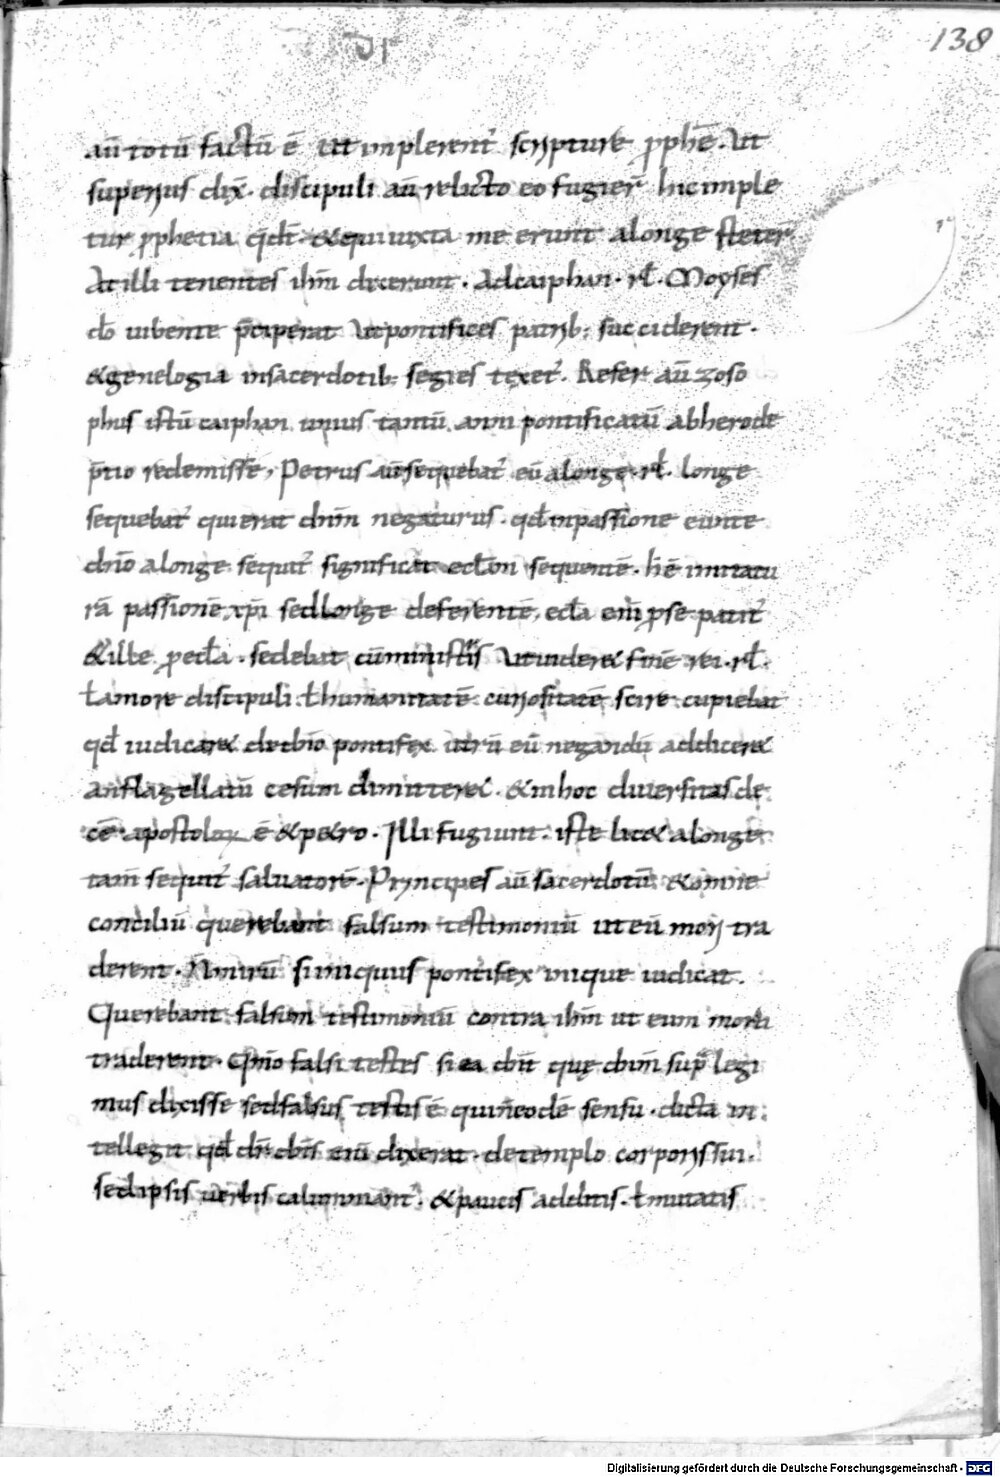 138
aū totū factū ē ut implerent᷑ scripture ꝓphē. Ut
superius dix̄. discipuli aū relicto eo fugier̄ hic imple
tur ꝓphetia q̄ dt̄. & qui iuxta me erunt a longe steter̄
At illi tenentes ihm̄ duxerunt. Ad caiphan. rł. Moyses
dō iubente p̄ceperat ut pontifices patrib; succiderent.
& genelogia in sacerdotib; segies texet᷑. Refer aū
phus istū caiphan unius tantū anni pontificatū ab herode
p̄tio redemisse, Petrus aū sequebat᷑ eū a longe. rł. longe
sequebat᷑ qui erat dnm̄ negaturus. qd̄ in passione eunte
dnō a longe sequit᷑ significat eccłm sequentē. hē imitatu
rā passionē xp̄i sed longe deferentē, eccła eni᷑ ꝓ se patit᷑
& ille ꝓ eccła. sedebat cū ministris ut uideret finē rei. rł.
ł amore discipuli. ł humanitatē curiositatē scire cupiebat
qd̄ iudicaret de dn̄o pontifex utrū eū negandū addiceret
an flagellatū cesum dimitteret. & in hoc diuersitas de
cē apostoloꝝ ē & petro. Illi fugiunt. iste licet a longe
tam̄ sequit᷑ saluatorē. Principes aū sacerdotū & omne
conciliū querebant falsum testimoniū ut eū morti tra
derent. Nimirū si iniquus pontifex inique iudicat.
Querebant falsum testimoniū contra ihm̄ ut eum morti
traderent. Qm̄o falsi testes si ea dn̄t quę dnm̄ sup̄ legi
mus dixisse sed falsus testis ē qui n̄ eodē sensu. dicta in
tellegit qd̄ dr̄. dn̄s eni᷑ dixerat. de templo corporis sui.
sed ipsis uerbis calumniant᷑. & paucis additis. ł mutatis
Digitalisierung gefördert durch die Deutsche Forschungsgemeinschaft - DFG